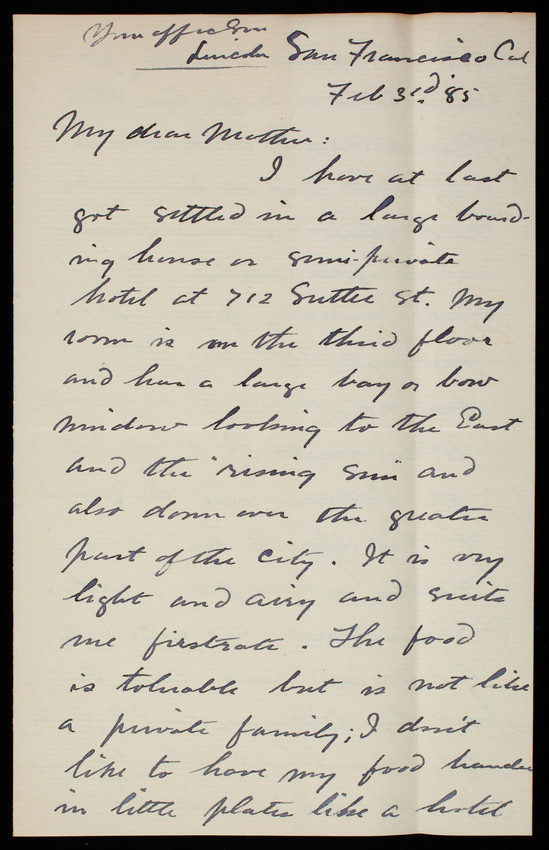 Your aff. Son
Lincoln
San Francisco Cal
Feb 3rd '85
My dear Mother:
I have at last
got settled in a large board-
ing house or semi-private
hotel at 712 Sutter St. My
room is on the third floor
and has a large bay or bow
window looking to the East
and the "rising sun and
also down over the greater
part of the city. It is very
light and airy and suits
me firstrate. The food
is tolerable but is not like
a private family; I don't
like to have my food handed
in little plates like a hotel